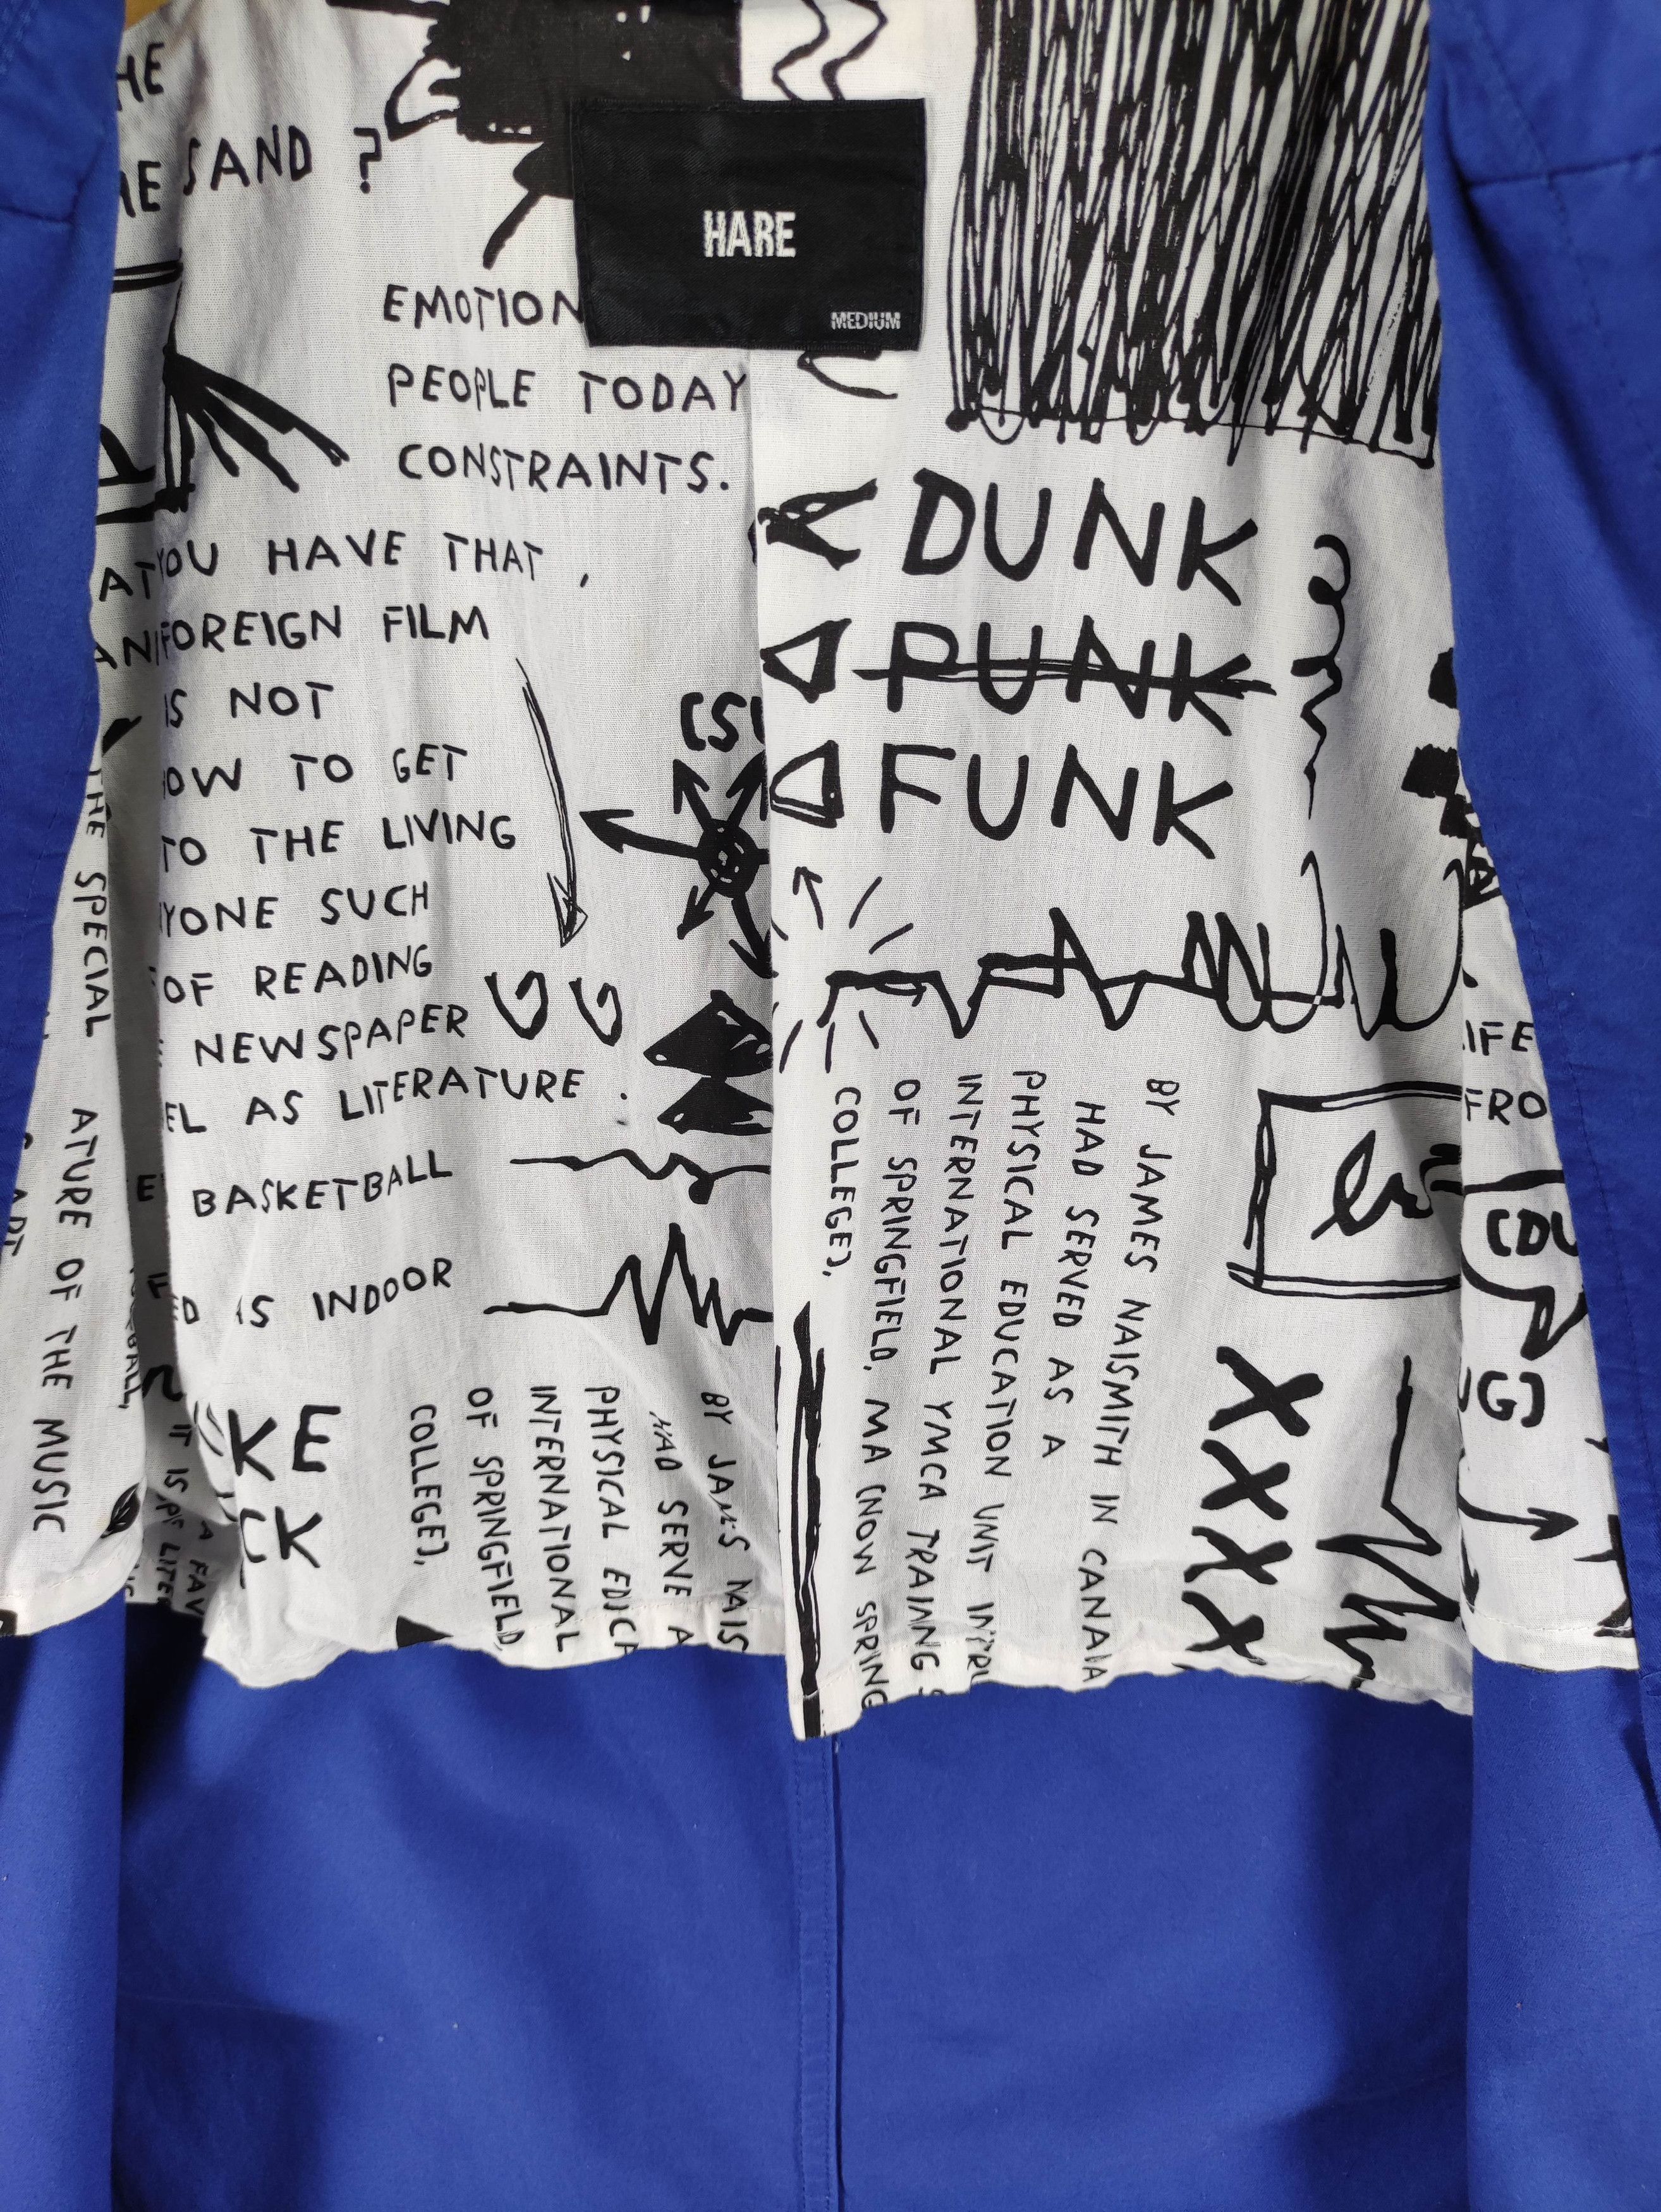 HE
SAND ?
HARE
MEDIUM
EMOTION
PEOPLE TODAY
CONSTRAINTS.
YOU HAVE THAT,
FOREIGN FILM
IS NOT
OW TO GET
TO THE LIVING
YONE SUCH
OF READING
NEWSPAPER
EL AS LITERATURE.
BASKETBALL
IS INDOOR
KE
CK
DUNK
PUNK
FUNK
BY JAMES NAISMITH IN CANAIA
HAD SERVED AS A
PHYSICAL EDUCATION UNIT
INTERNATIONAL YMCA TRAINING
OF SPRINGFIELD, MA (NOW SPRING
COLLEGE),
BY JAMES NAIS
HAD SERVE A
PHYSICAL
INTERNATIONAL
OF SPRINGFIELD,
COLLEGE),
THE SPECIAL
ATURE OF THE MUSIC
IT IS
A FAV
XXXX
IFE
FRO
[DU
UG]